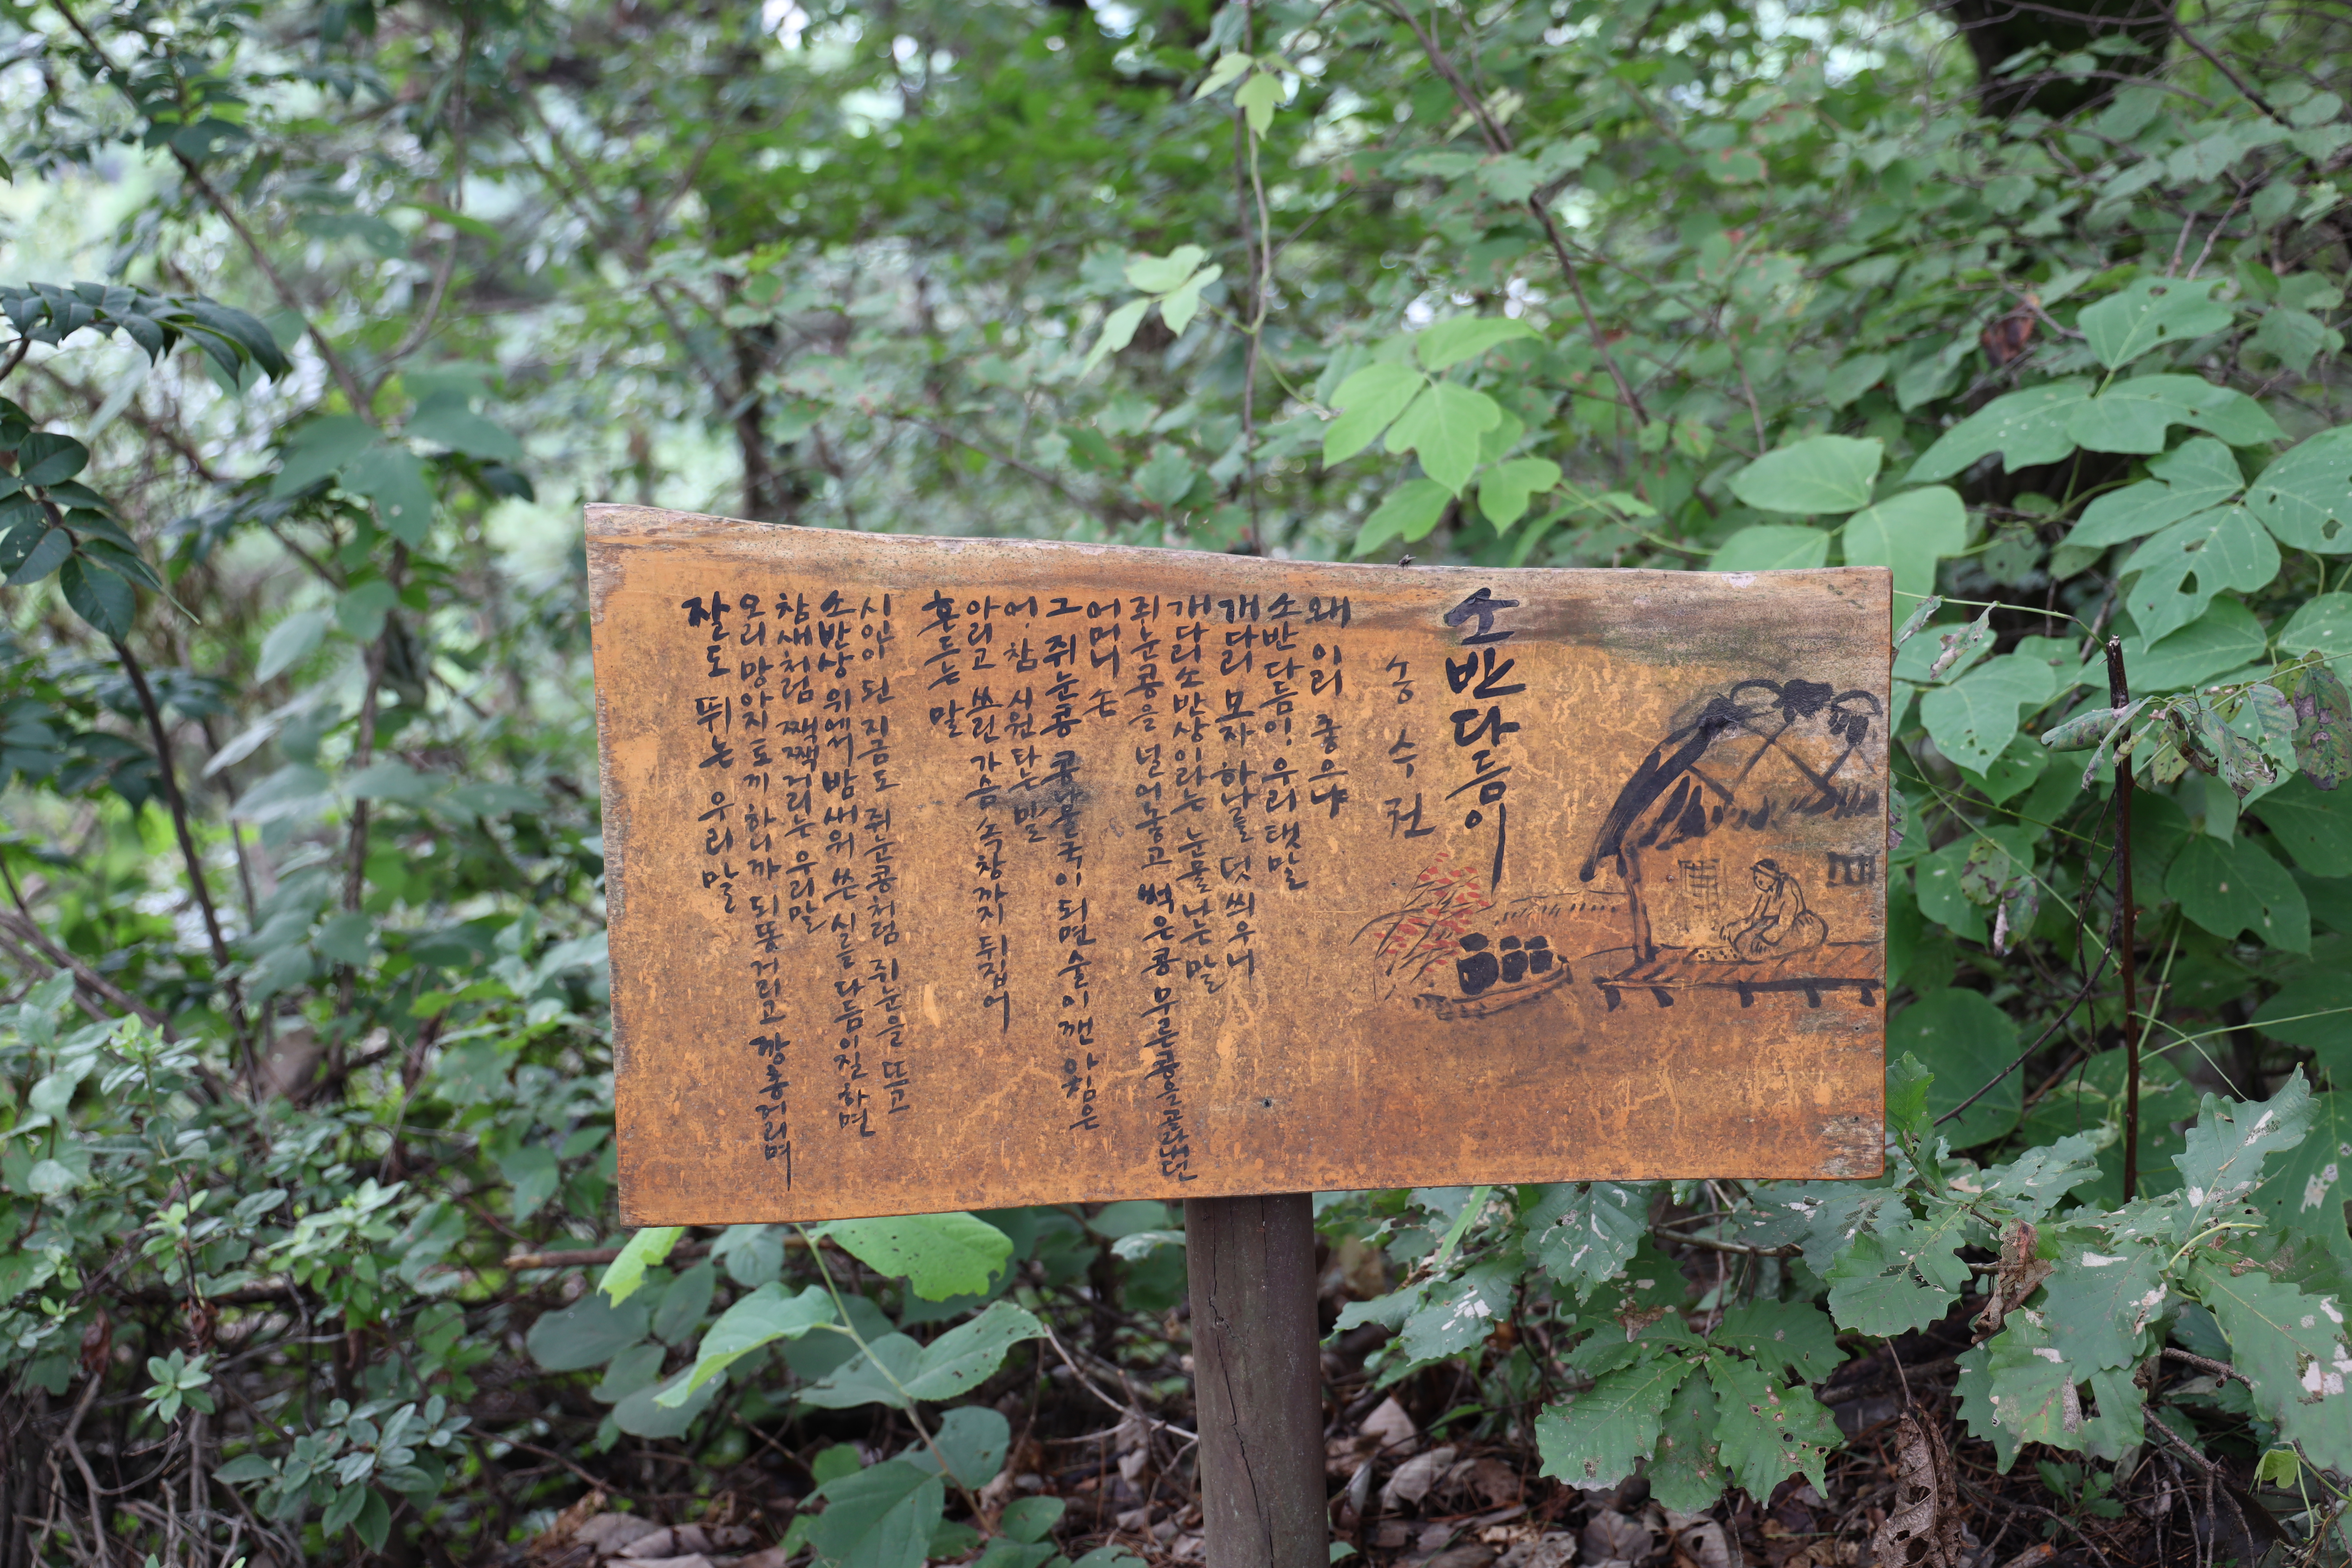 소반다듬이
송수권
왜 이리 좋으냐
소반다듬이, 우리 탯말
개다리 모자 하나를 덧씌우니
개다리소반상이라는 눈물나는 말
쥐눈콩을 널어놓고 썩은콩 무른콩을 골라내던
어머니 손
그 쥐눈콩 콩나물국이 되면 술이 깬 아침은
어, 참 시원타는 말
아리고 쓰린 가슴 속창까지 뒤집어
흔드는 말
시인이 된 지금도 쥐눈콩처럼 쥐눈을 뜨고
소반상 위에서 밤새워 쓴 시를 다듬이질하면
참새처럼 짹짹거리는 우리말
오리 망아지 토끼 하니까 되똥거리고 깡총거리며
잘도 뛰는 우리말